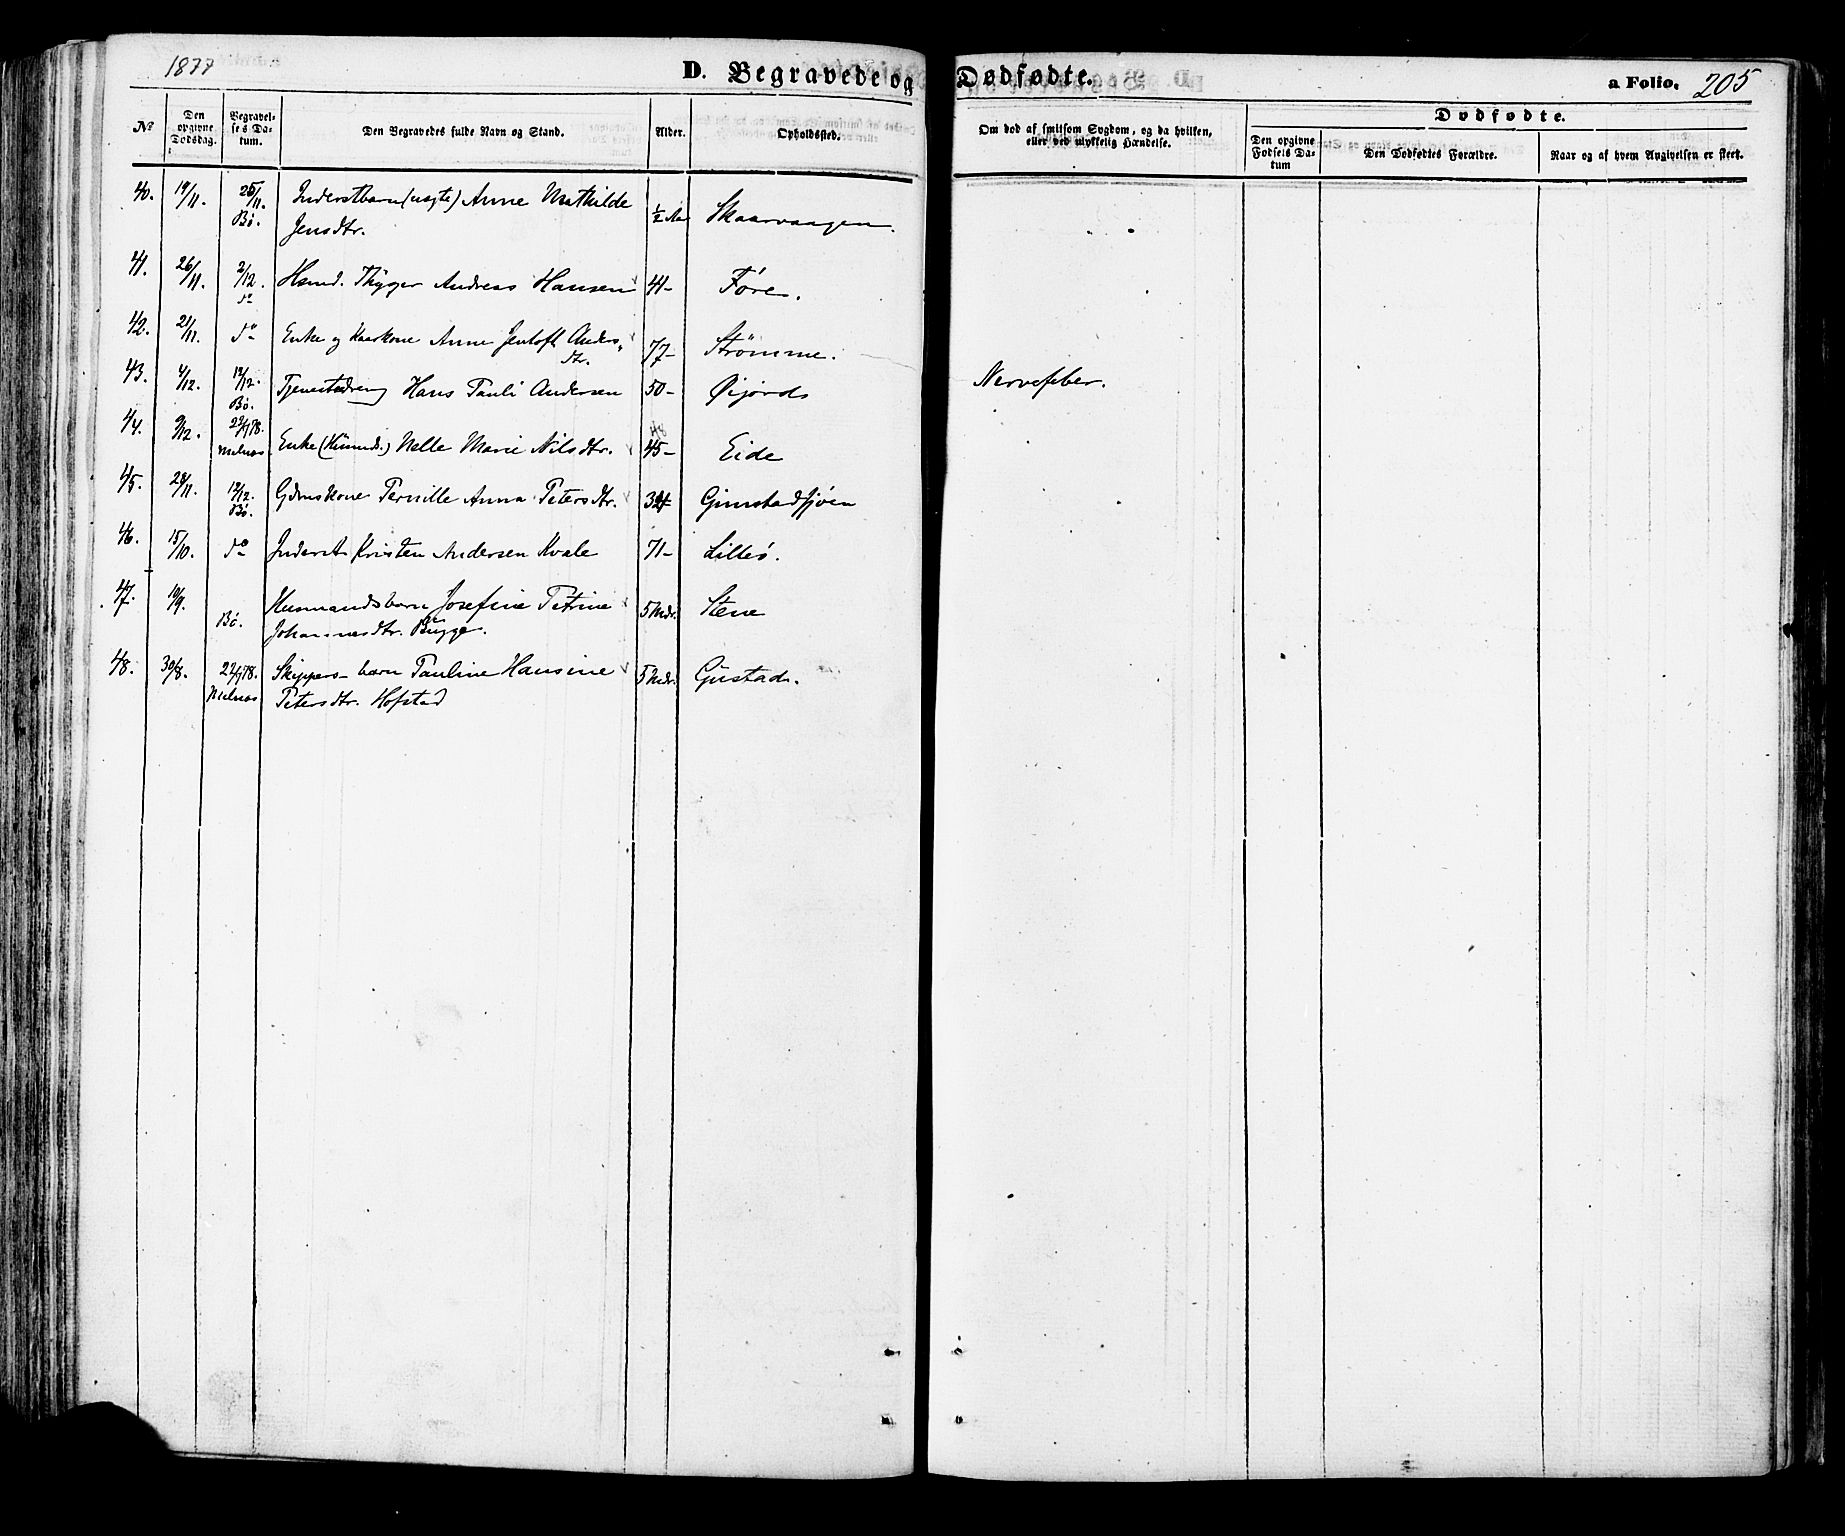 1877
D. Begravede og Dødfødte.
a Folio. 205
No
Den opgivne Dødsdag.
Begravelses Datum.
Den Begravedes fulde Navn og Stand.
Alder.
Opholdssted.
Om død af smitsom Sygdom, og da hvilken,
eller ved ulykkelig Hændelse.
Dødfødte.
Den opgivne Fødsels Datum
Den Dødfødtes Forældre.
Naar og af hvem Angivelsen er skeet.
40. 19/11. 25/11. Bø. Inderstbarn (uægte) Anne Mathilde ½ Aar Skaarvaagen.
Jensdtr.
41. 26/11. 2/12. do Hsmd. Thyger Andreas Hansen 41- Føre.
42. 21/11. do Enke og Kaarkone Anne Jentoft Anders- 77- Strømme.
dtr.
43. 4/12. 12/12. Bø. Tjenestedreng Hans Pauli Andersen 50- Øijord Nervefeber.
44. 9/12. 22/1 78. Melnæs Enke (Husmds.) Nelle Marie Nilsdtr. 45- Eide
45. 28/11. 12/12. Bø. Gdmskone Pernille Anna Petersdtr. Gimstadsjøen
46. 15/10. do Inderst Kristen Andersen Kvale 71- Lillesø.
47. 10/9. Bø. Husmandsbarn Josefine Petrine 5 Mdr. Stene
Johannesdtr. Bugge.
48. 30/8. 22/1 78. Melnæs Skippers-barn Pauline Hansine 5 Mdr. Gustad.
Petersdtr. Hofstad